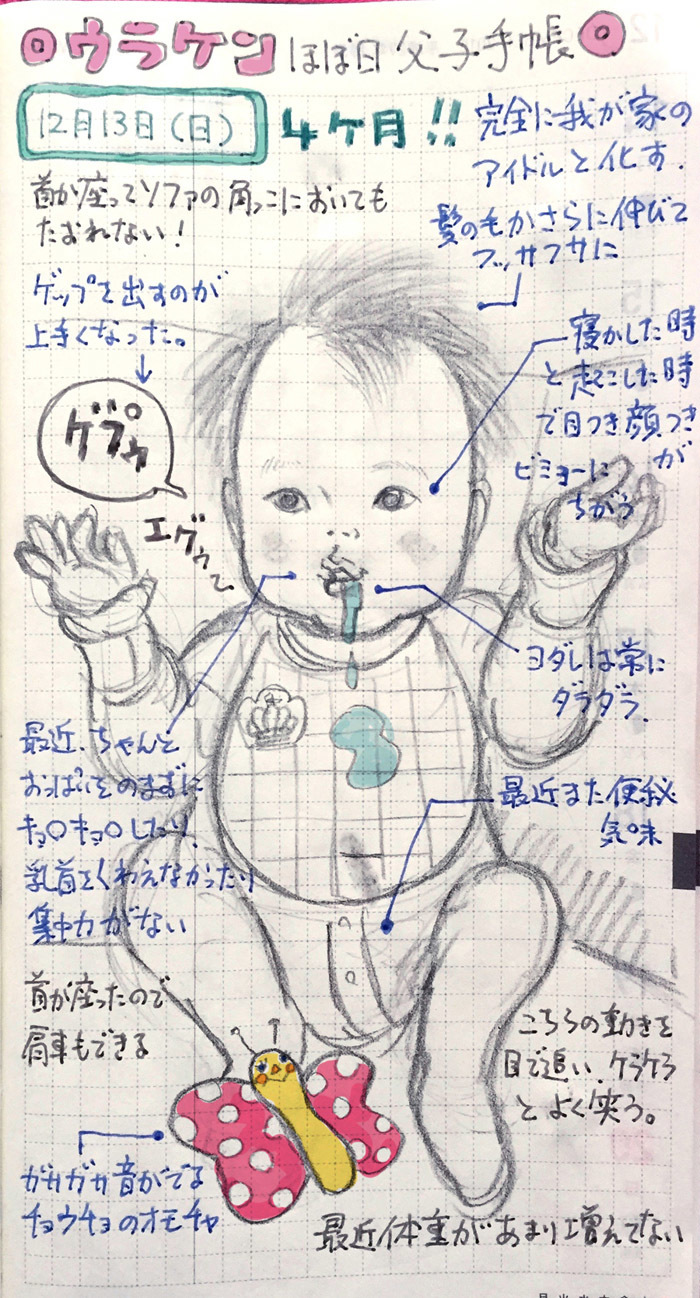 ウラケン ほぼ日 父子手帳
12月13日(日)
4ケ月!!
完全に我が家の
アイドルと化す.
首が座ってソファの角っこにおいても
たおれない!
髪の毛がさらに伸びて
フッサフサに
ゲップを出すのが
上手くなった。
寝かした時
と起こした時
で目つき顔つき
が
ビミョーに
ちがう
ゲプゥ
エグゥ〜
ヨダレは常に
ダラダラ.
最近、ちゃんと
おっぱいをのまずに
キョロキョロしたり、
乳首をくわえなかったり
集中力がない
最近また便秘
気味
首が座ったので
肩車もできる
こちらの動きを
目で追い、ケラケラ
とよく笑う。
ガサガサ音がでる
チョウチョのオモチャ
最近体重があまり増えてない